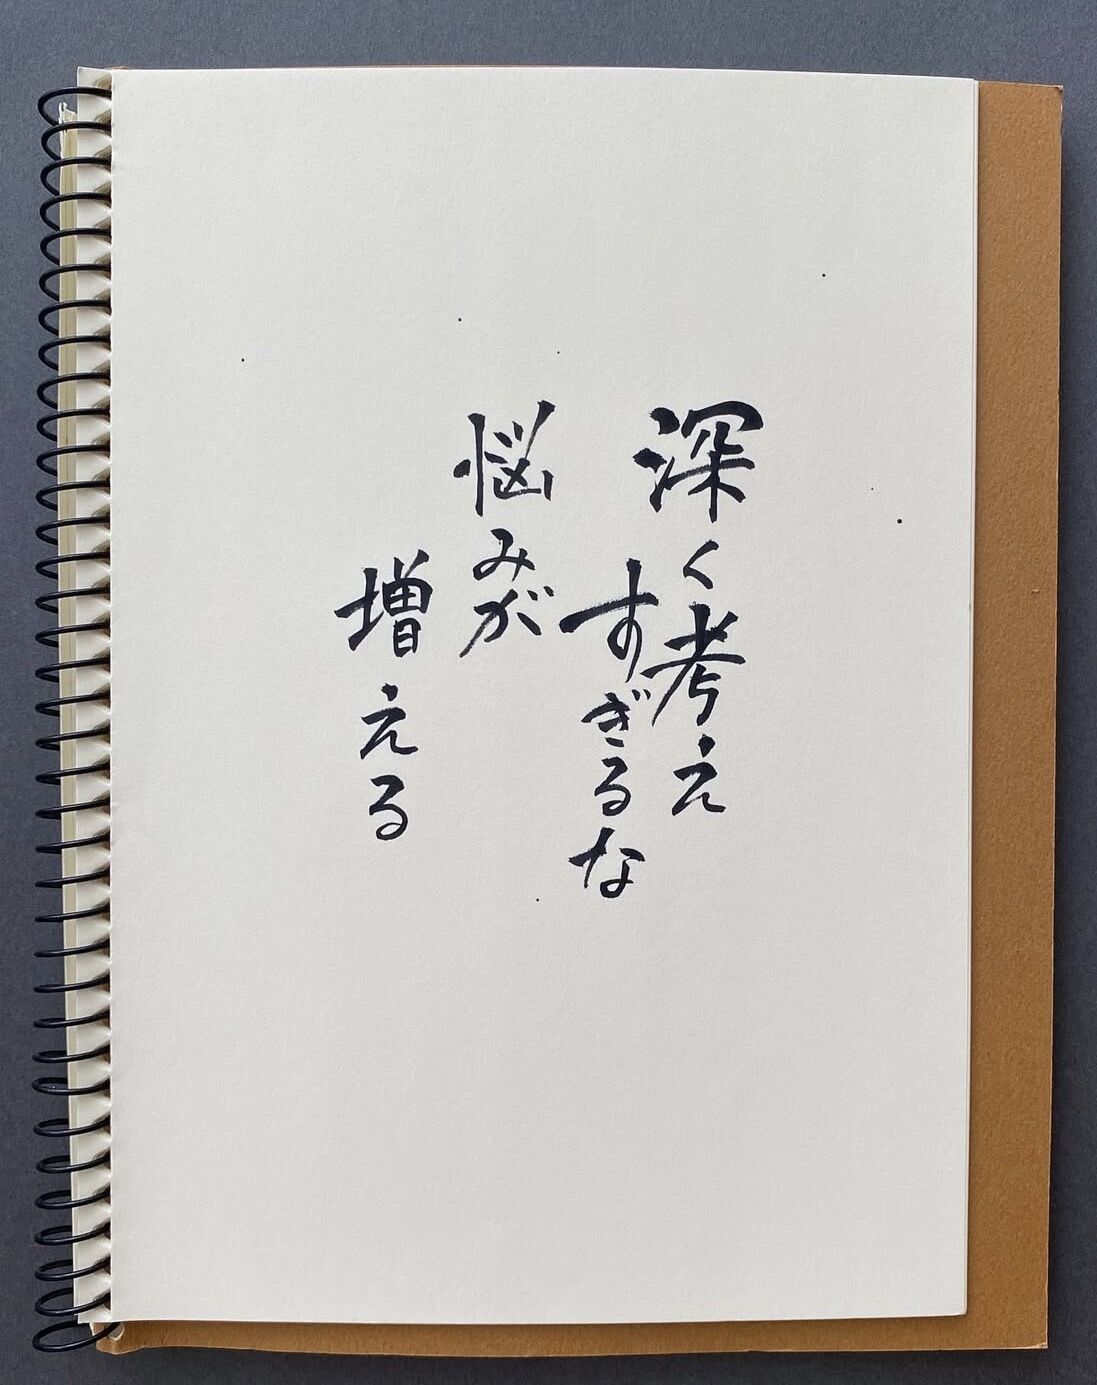 深く考え
すぎるな
悩みが
増える